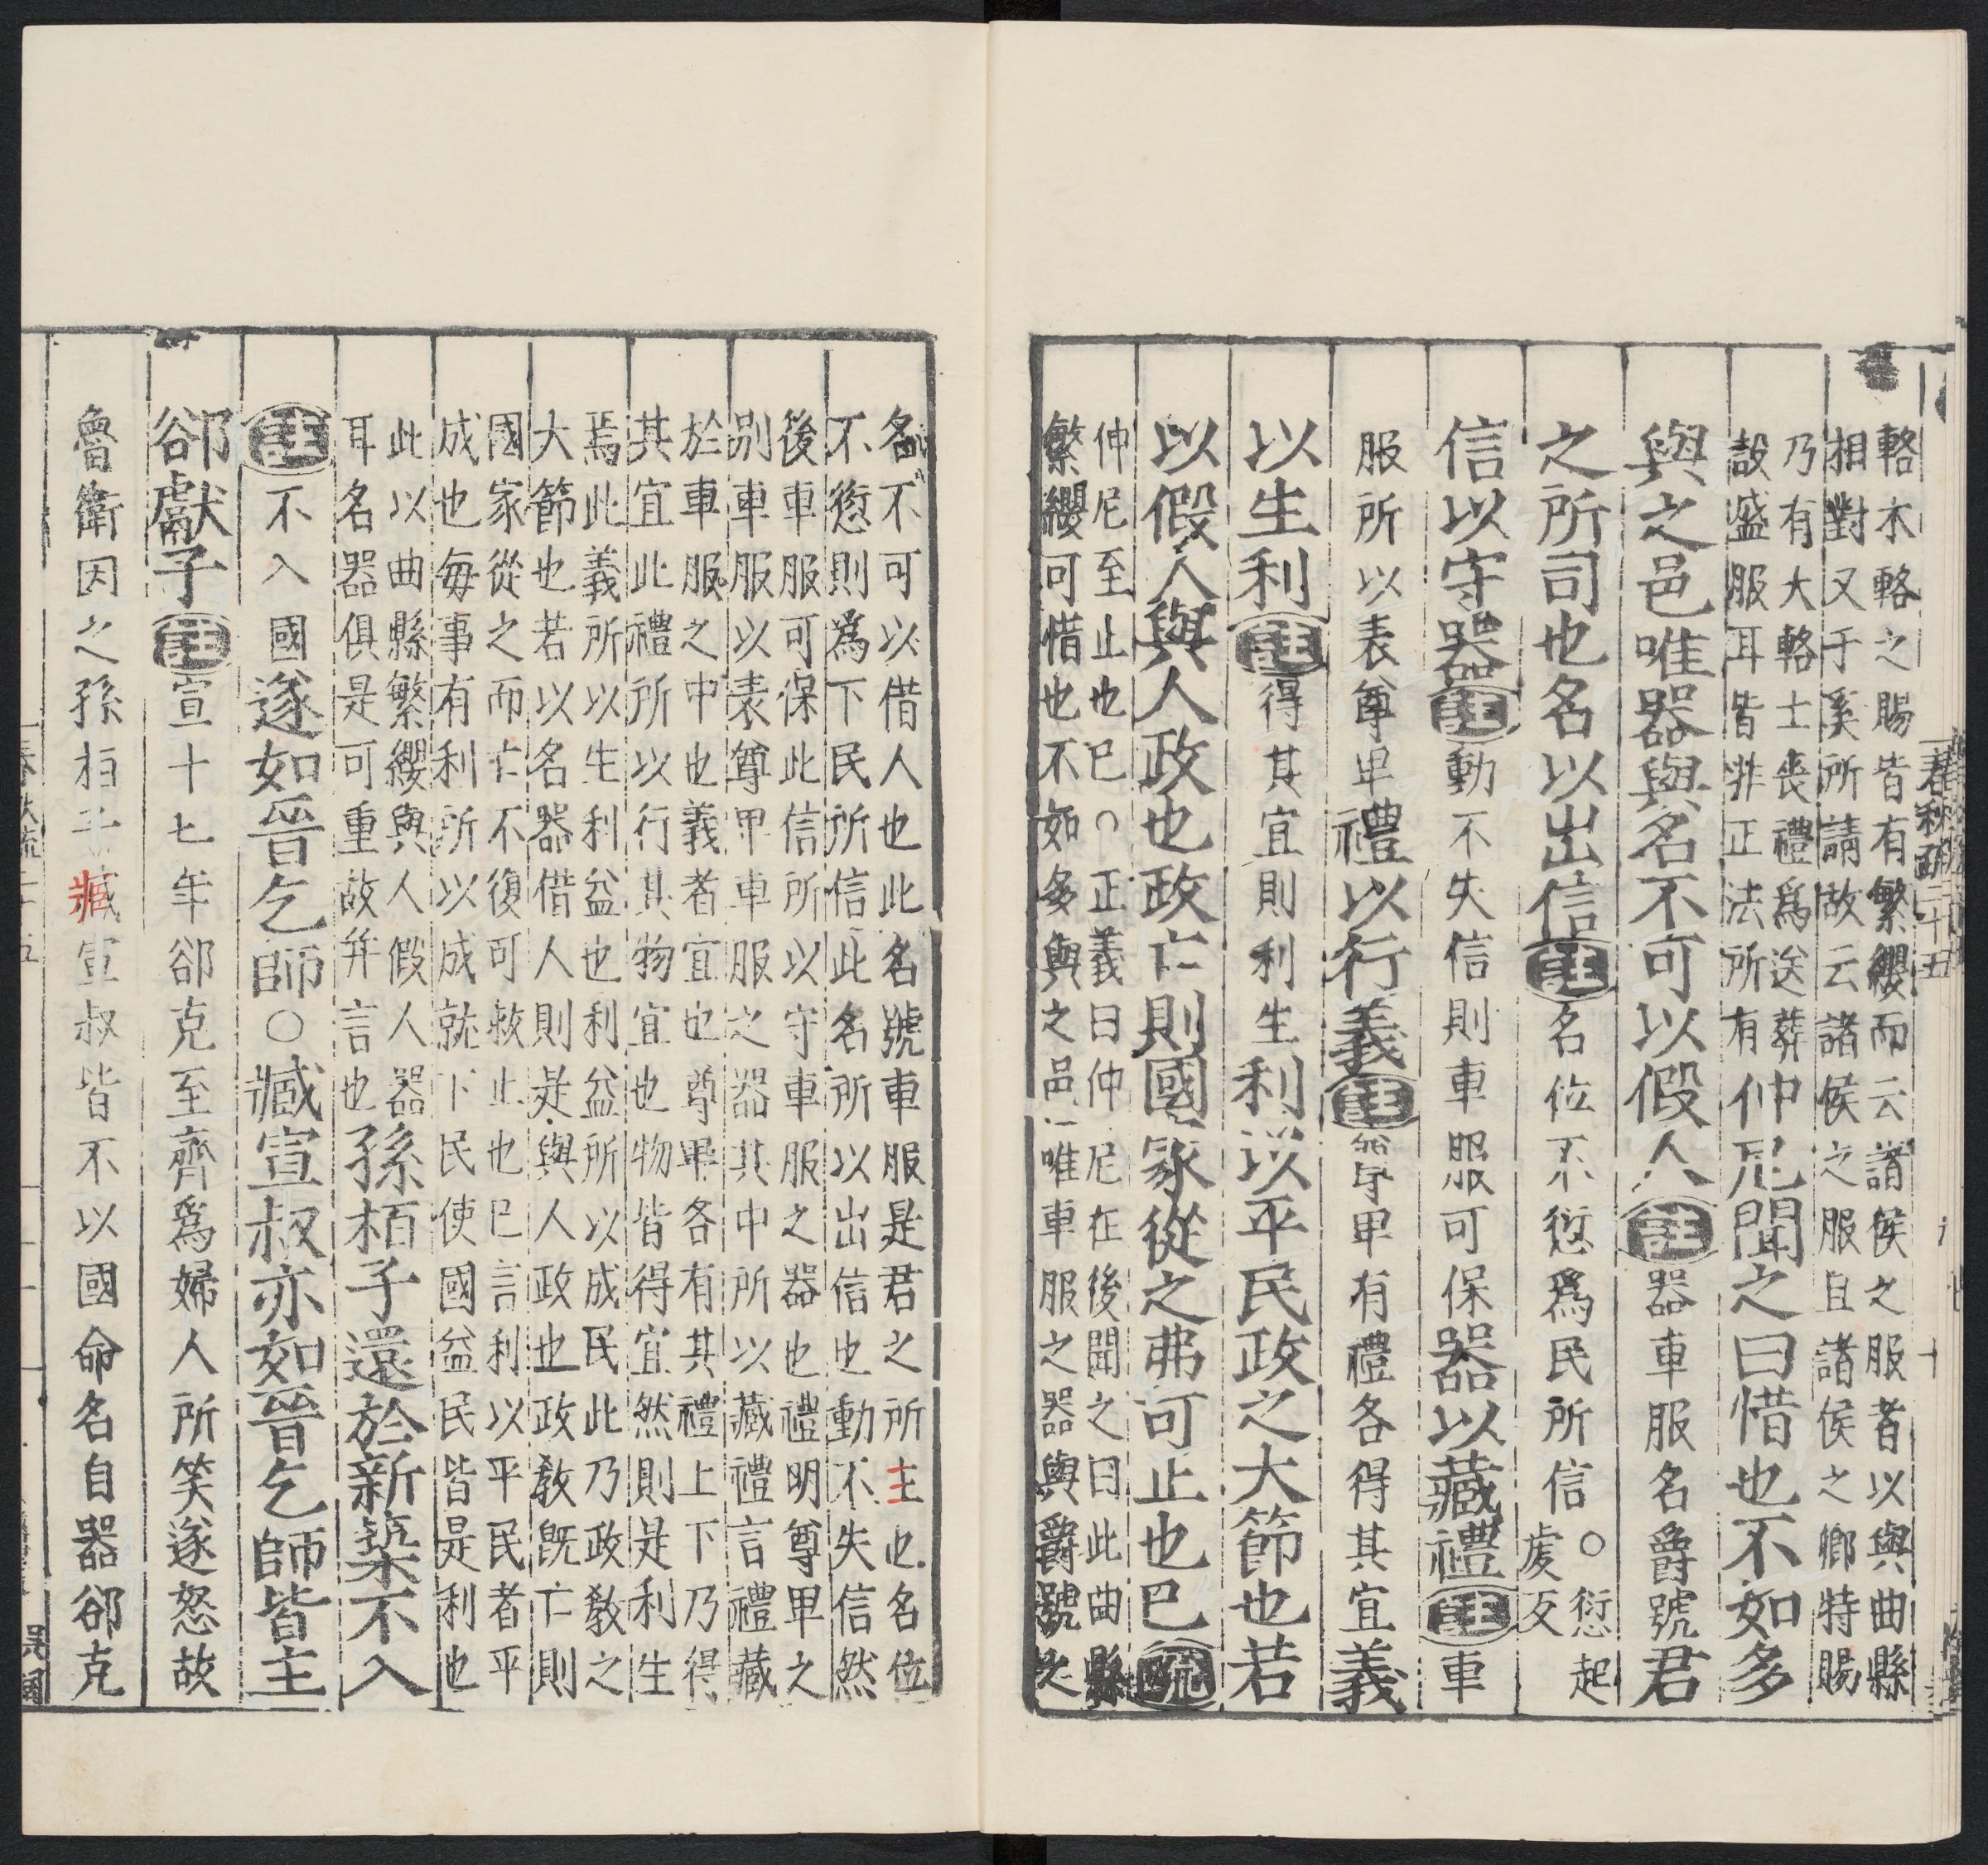 輅木輅之賜皆有繁纓而云諸侯之服者以與曲縣
相對又于奚所請故云諸侯之服且諸侯之卿特賜
乃有大輅士喪禮爲送葬
設盛服耳皆非正法所有仲尼聞之曰惜也不如多
與之邑唯器與名不可以假人註器車服名爵號君
之所司也名以出信註名位不愆爲民所信○愆起
虔反
信以守器註動不失信則車服可保器以藏禮註車
服所以表尊卑禮以行義註尊卑有禮各得其宜義
以生利註得其宜則利生利以平民政之大節也若
以假人與人政也政亡則國家從之弗可止也巳疏
仲尼至止也巳○正義曰仲尼在後聞之曰此曲縣
繁纓可惜也不如多與之邑唯車服之器與爵號之
名不可以借人也此名號車服是君之所主也名位
不愆則爲下民所信此名所以出信也動不失信然
後車服可保此信所以守車服之器也禮明尊卑之
別車服以表尊卑車服之器其中所以藏禮言禮藏
於車服之中也義者宜也尊卑各有其禮上下乃得
其宜此禮所以行其物宜也物皆得宜然則是利生
焉此義所以生利益也利益所以成民此乃政教之
大節也若以名器借人則是與人政也政教旣亡則
國家從之而亡不復可救止也巳言利以平民者平
成也每事有利所以成就下民使國益民皆是利也
此以曲縣繁纓與人假人器
耳名器俱是可重故并言也孫栢子還於新築不入
註不入國遂如晉乞師○臧宣叔亦如晉乞師皆主
郤獻子註宣十七年郤克至齊爲婦人所笑遂怒故
魯衛因之孫栢子臧宣叔皆不以國命各自器郤克
春秋疏二十五